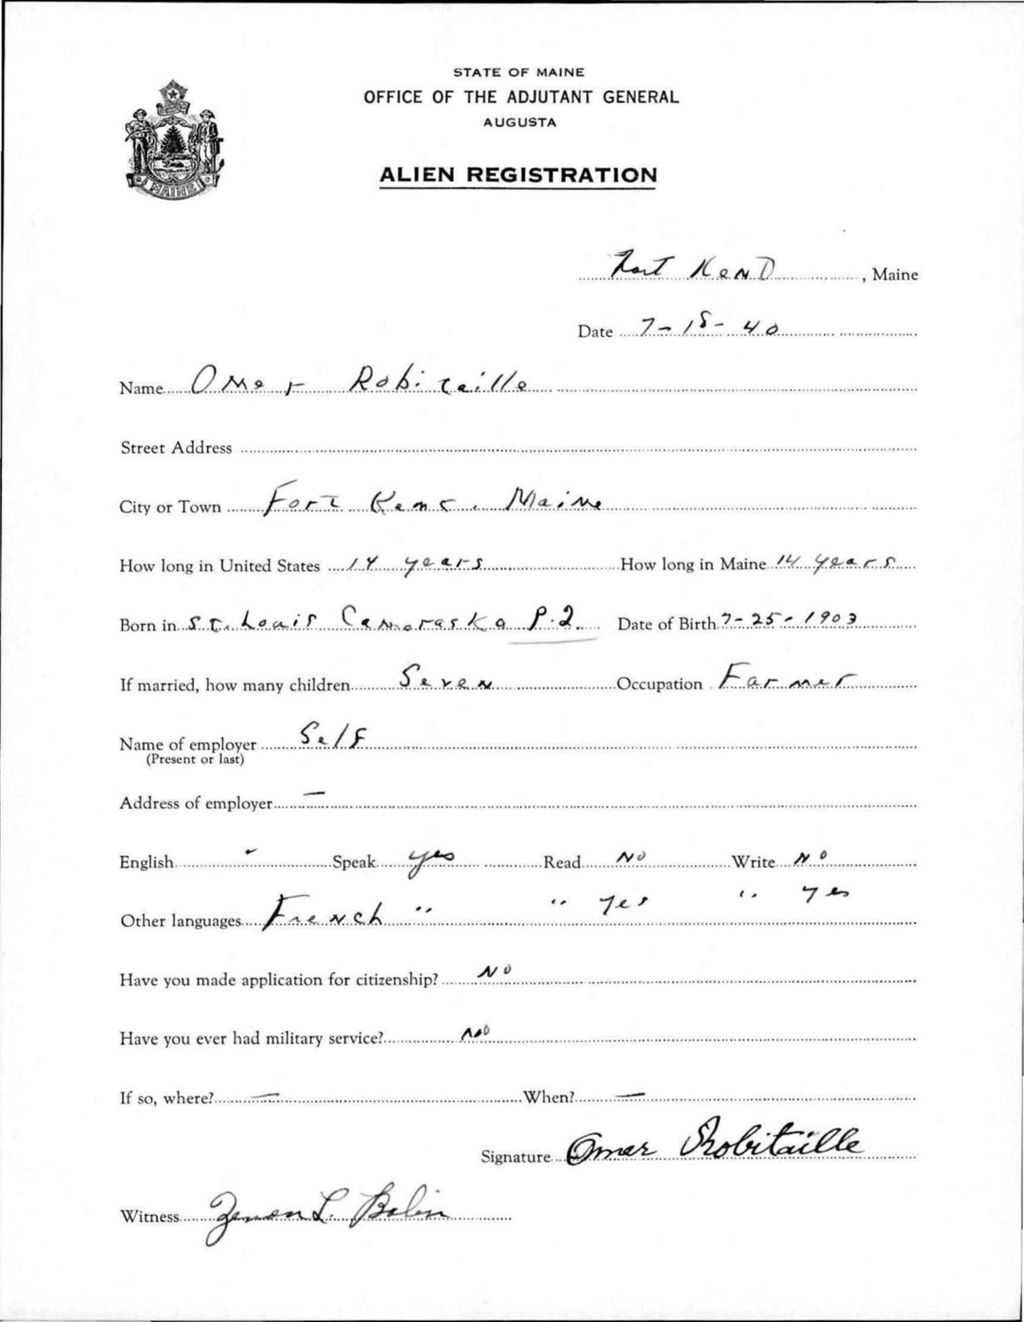 STATE OF MAINE
OFFICE OF THE ADJUTANT GENERAL
AUGUSTA
ALIEN REGISTRATION
MAINE
Fort Kent, Maine
Date 7-18-40
Name Omer Robitaille
Street Address
City or Town Fort Kent, Maine
How long in United States 14 years How long in Maine 14 years
Born in St. Louis Camoraska P.Q. Date of Birth 7-25-1903
If married, how many children Seven Occupation Farmer
Name of employer Self
(Present or last)
Address of employer —
English Speak yes Read No Write No
Other languages French " " yes " yes
Have you made application for citizenship? No
Have you ever had military service? No
If so, where? — When? —
Signature Omer Robitaille
Witness L.